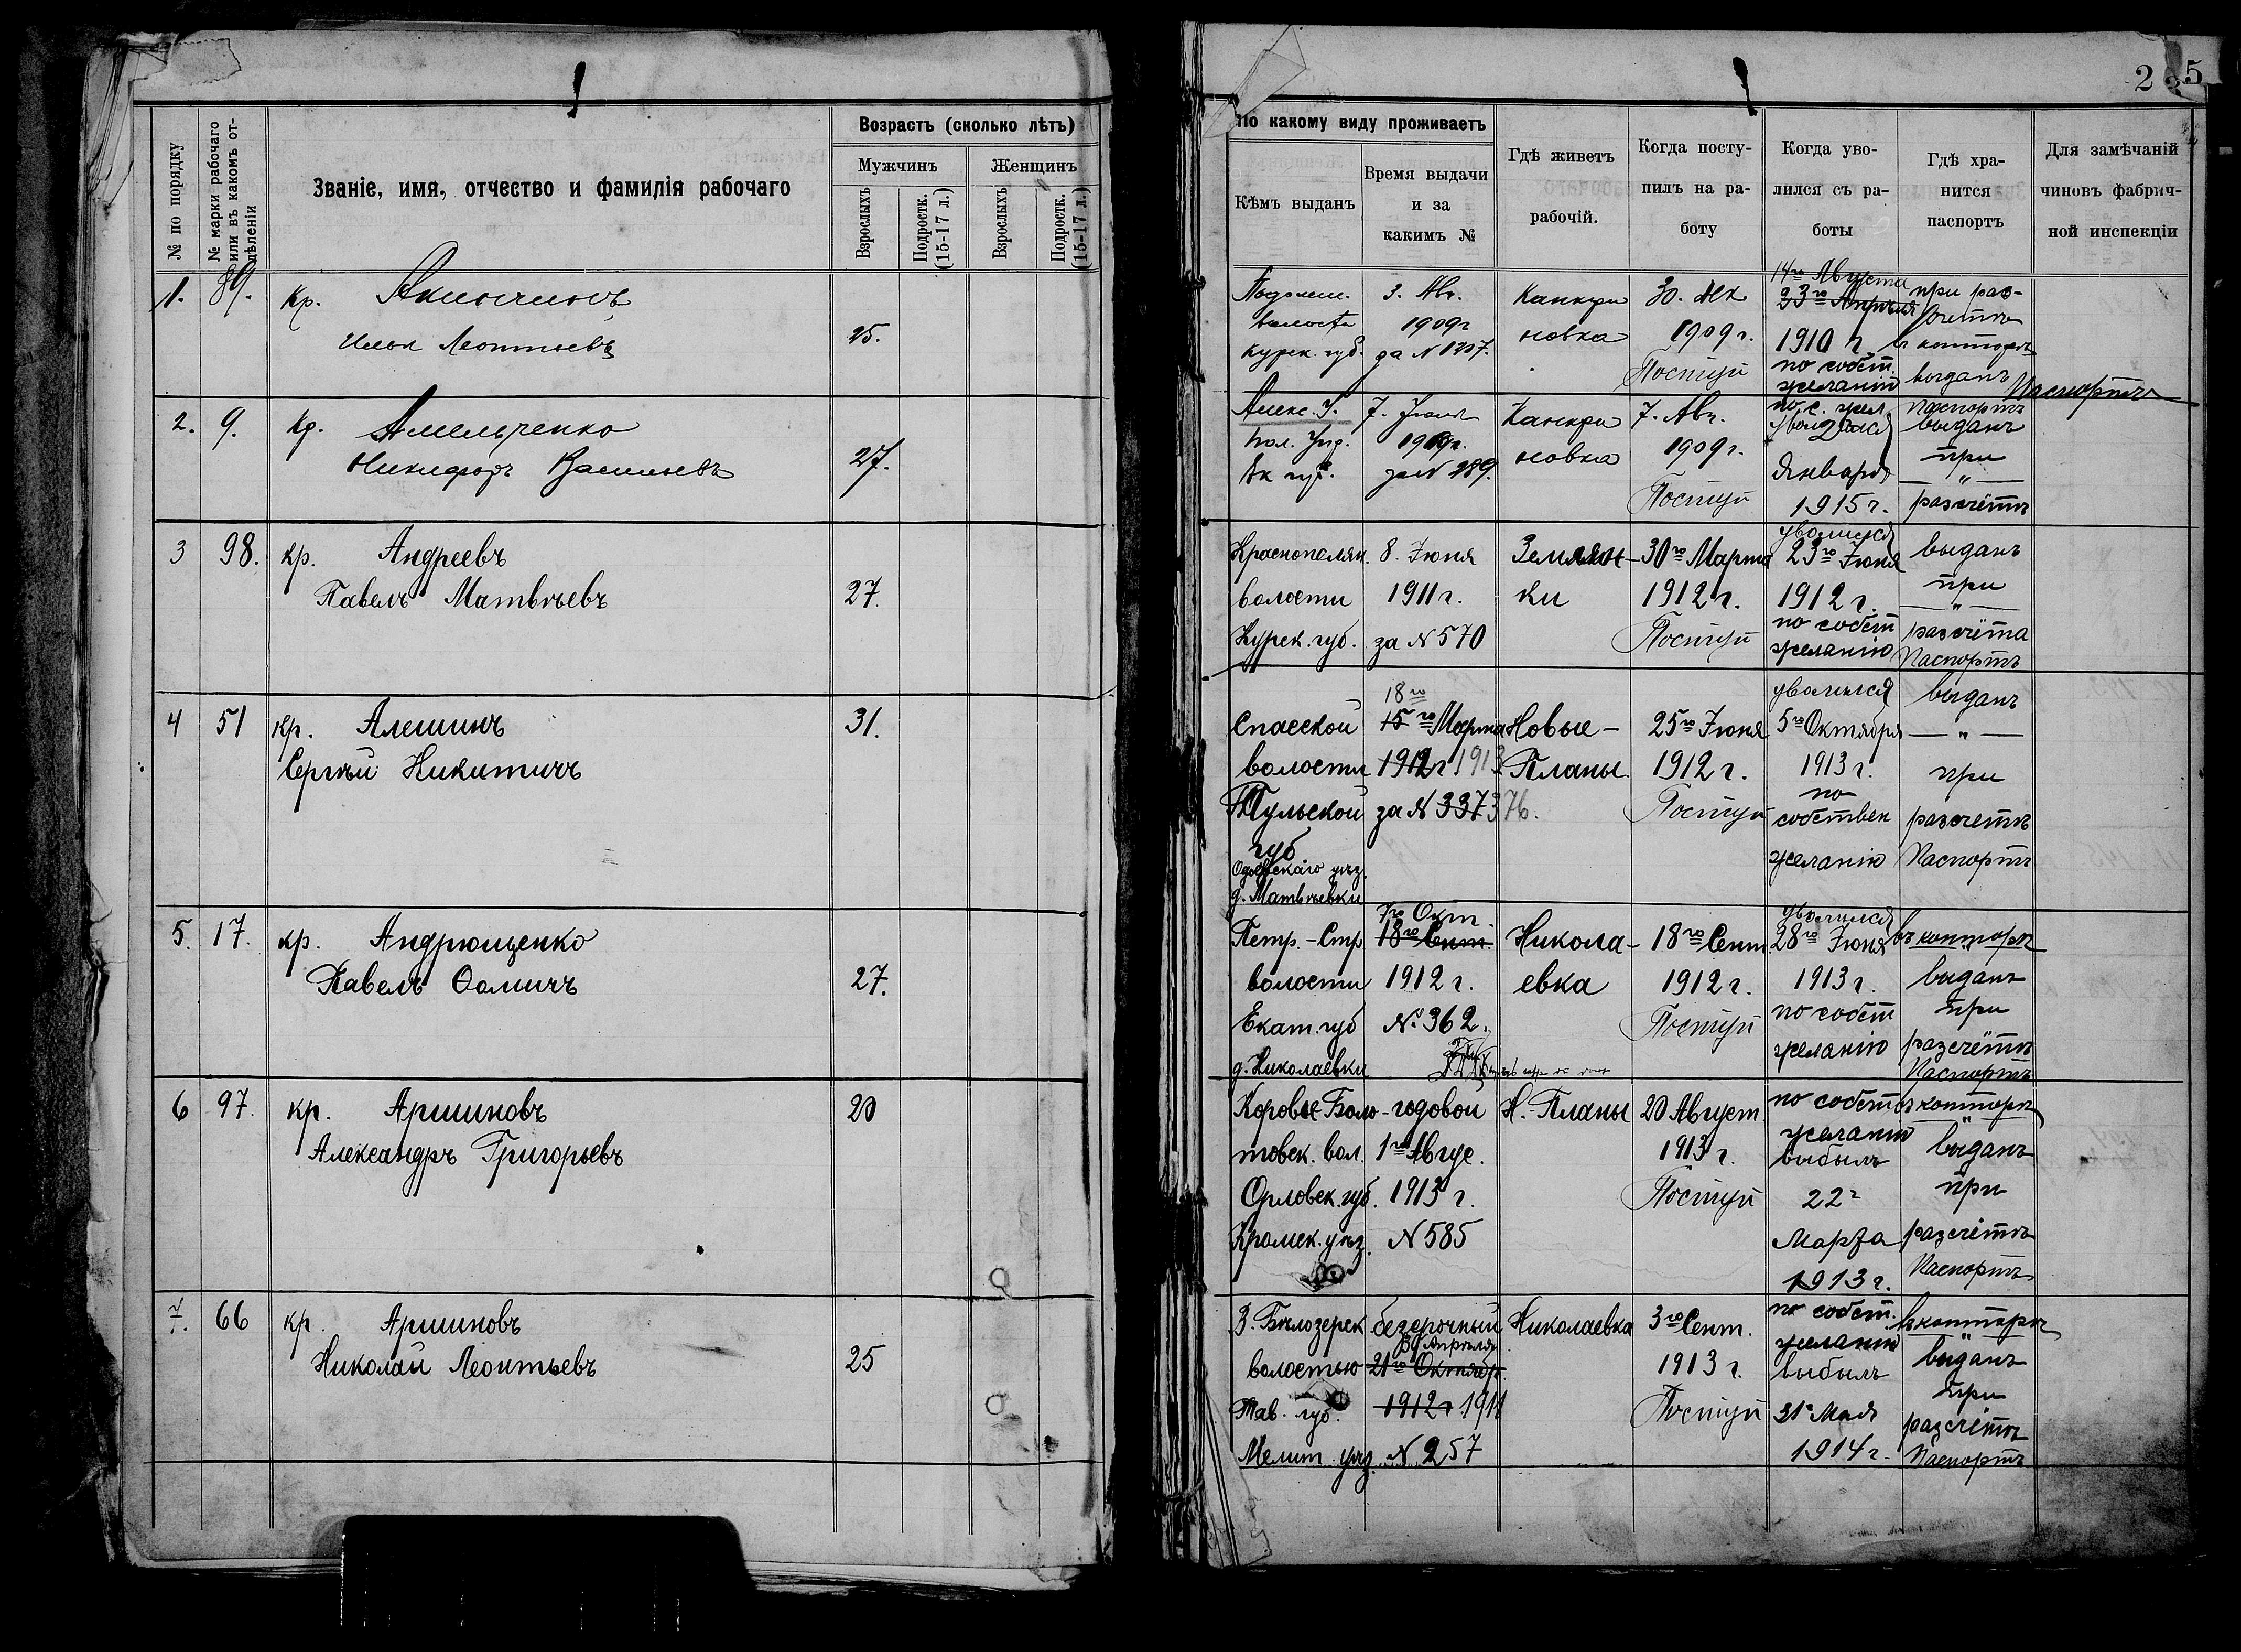 № по порядку
№ марки рабочаго или въ какомъ отдѣленіи
Званіе, имя, отчество и фамилія рабочаго
Возрастъ (сколько лѣтъ)
Мужчинъ
Женщинъ
Взрослыхъ
Подростк. (15-17 л.)
Взрослыхъ
Подростк. (15-17 л.)
1. 89. Кр. Акиньчинъ 25.
Илья Леонтьевъ
2. 9. Кр. Амельченко 27.
Никифоръ Васильевъ
3 98. кр. Андреевъ
Павелъ Матвѣевъ 27.
4 51 кр. Алешинъ 31.
Сергѣй Никитичъ
5. 17. кр. Андрющенко
Павелъ Ѳомичъ 27.
6 97. кр. Аршиновъ 20
Александръ Григорьевъ
7. 66 кр. Аршиновъ
Николай Леонтьевъ 25
2 5
По какому виду проживаетъ
Кѣмъ выданъ
Время выдачи
и за
какимъ №
Гдѣ живетъ
рабочій.
Когда посту-
пилъ на ра-
боту
Когда уво-
лился съ ра-
боты
Гдѣ хра-
нится
паспортъ
Для замѣчаній
чиновъ фабрич-
ной инспекціи
волости
Курск. губ.
3. Авг.
1909г
за N 1207.
Канкри
новка
30. Дек
1909 г.
Поступ
14го Августа
23го Апрѣля
1910 г
по собст.
желанію
при раз-
счетѣ
въ конторѣ
выданъ
Паспортъ
Алекс. У.
7. Іюля
за N 289.
Канкри
новка
7. Авг.
1909 г.
Поступ
по с. жел.
уволился
2
Января
1915 г.
Паспортъ
выданъ
при
— „ —
разсчётѣ
Краснополян.
волости
Курск. губ.
8. Іюня
1911 г.
за N 570
Землян-
ки
30го Марта
1912 г.
Поступ
уволился
23го Іюня
1912 г.
по собст
желанію
выданъ
при
— „ —
разсчёта
Паспортъ
Спасской
волости
Тульской
губ
Одоевскаго уѣз.
д. Матвѣевки
18го
15го Марта
1912г 1913
за N 337 376.
Новые-
Планы.
25го Іюня
1912 г.
Поступ
уволился
5го Октября
1913 г.
по
собствен
желанію
выданъ
— „ —
при
разсчетѣ
Паспортъ
Петр.-Стр.
волости
Екат. губ
д. Николаевки
7го Окт.
18го Сент.
1912 г.
№ 362.
Никола-
евка
18го Сент.
1912 г.
Поступ
уволился
28го Іюня
1913 г.
по собст
желанію
въ конторѣ
выданъ
при
разсчётѣ
Паспортъ
Коровье-Боло-
товск. вол.
Орловск. губ.
Кромск. уѣз.
годовой
1го Авгус.
1913 г.
N 585
Н.-Планы
20 Август.
1913 г.
Поступ
по собст
желанію
выбылъ
22г
Марта
1913 г.
въ конторѣ
выданъ
при
разсчётѣ
Паспортъ
З. Бѣлозерск
волостью
Тав. губ.
Мелит. уѣз.
безсрочный
Апрѣля
21го Октябр.
1912 г 1911
N 257
Николаевка
3го Сент.
1913 г.
Поступ
по собст.
желанію
выбылъ
31г Мая
1914 г.
въ конторѣ
выданъ
при
разсчётѣ
Паспортъ